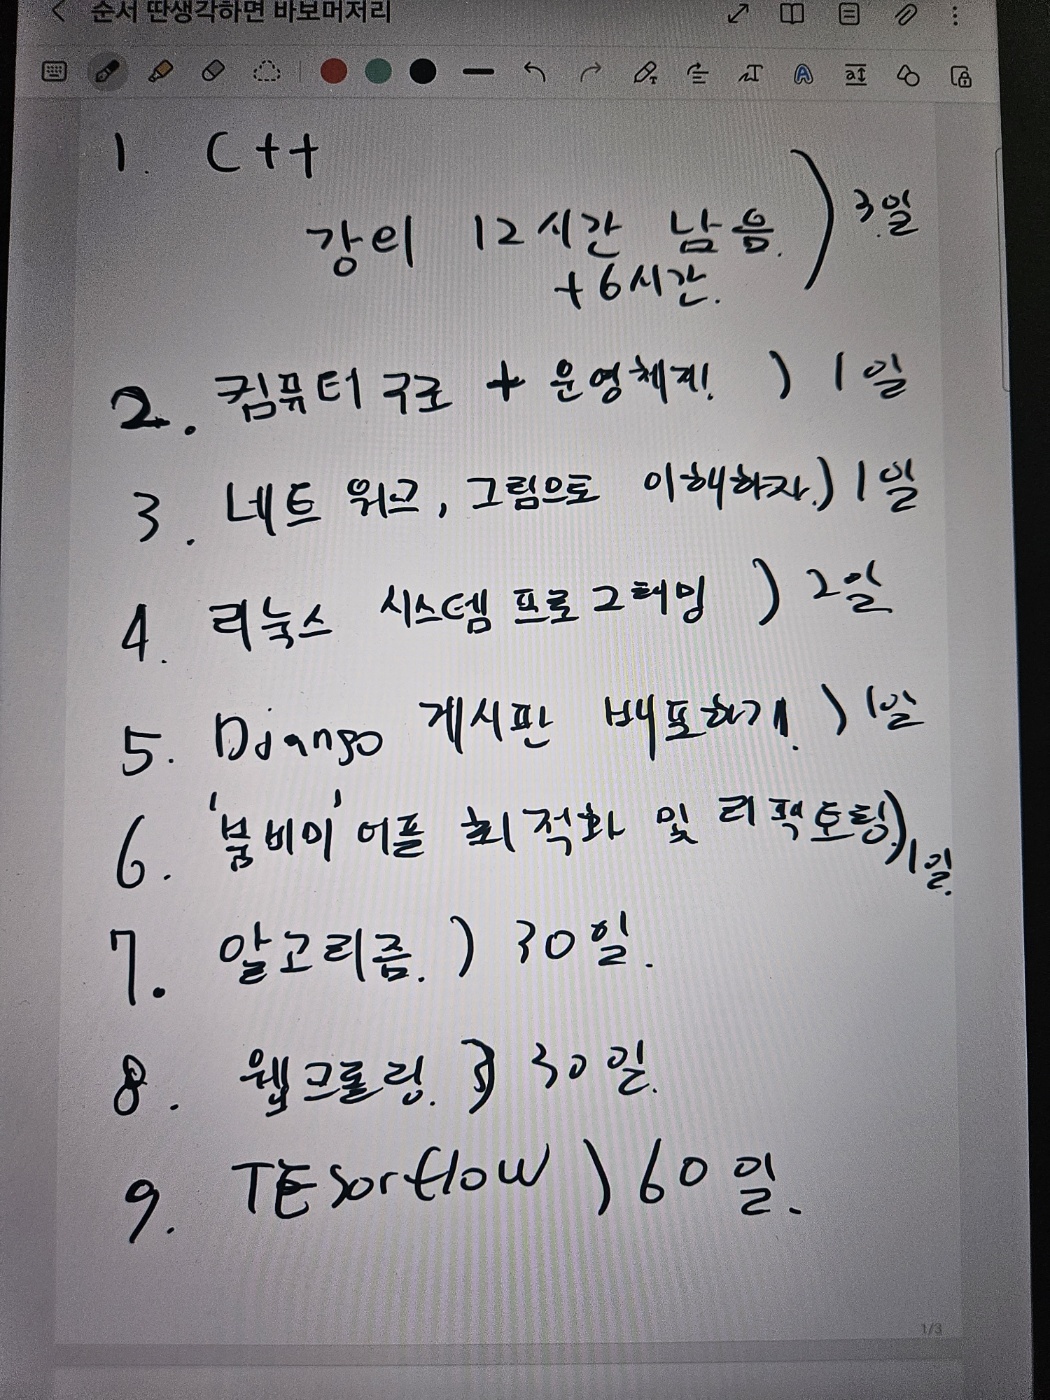 순서 딴생각하면 바보머저리
1. C++
강의 12시간 남음. ) 3일
+6시간.
2. 컴퓨터 구조 + 운영체제! ) 1일
3. 네트워크, 그림으로 이해하자.) 1일
4. 리눅스 시스템 프로그래밍 ) 2일
5. Django 게시판 배포하기. ) 1일
6. '붐비미' 어플 최적화 및 리팩토링.) 1일.
7. 알고리즘. ) 30일.
8. 웹크롤링. ) 30일.
9. TEsorflow ) 60일.
1/3